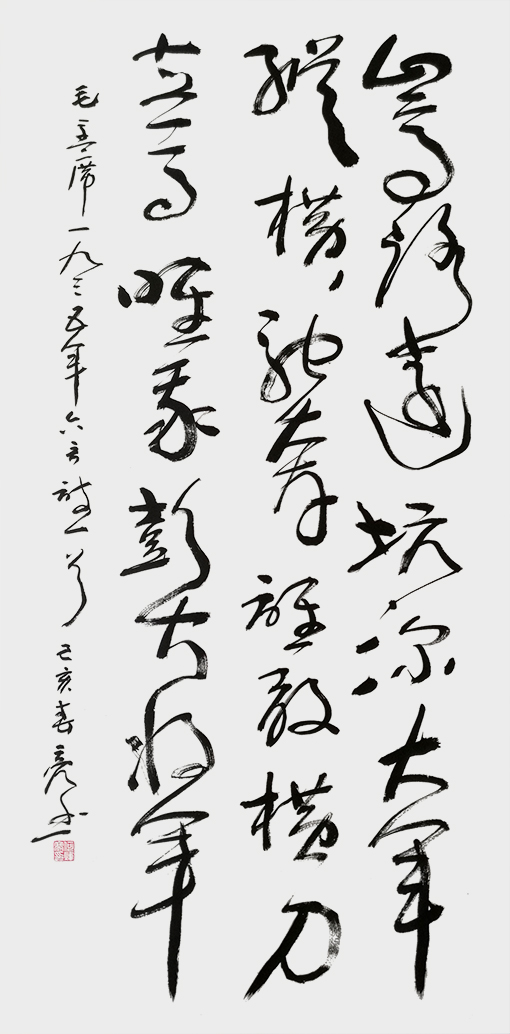 山高路遠坑深大軍
縱橫馳奔誰敢橫刀
立馬唯我彭大將軍
毛主席一九三五年六言詩一首 己亥春